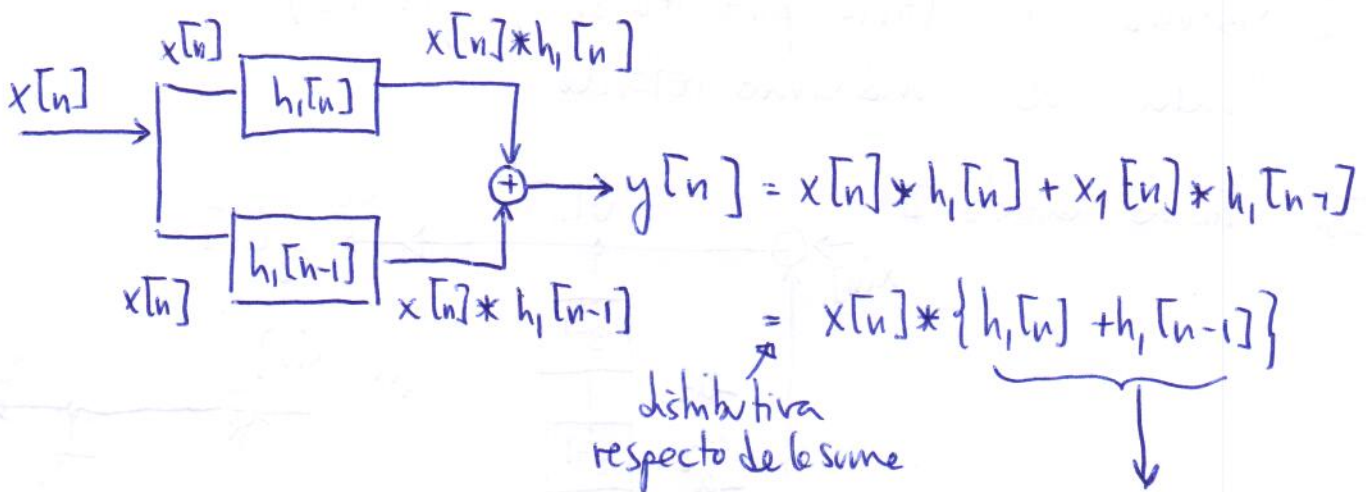 x[n] x[n] h₁[n] x[n]*h₁[n]
y[n] = x[n]*h₁[n] + x₁[n]*h₁[n-1]
x[n] h₁[n-1] x[n]*h₁[n-1]
= x[n]*{h₁[n]+h₁[n-1]}
distributiva
respecto de la suma